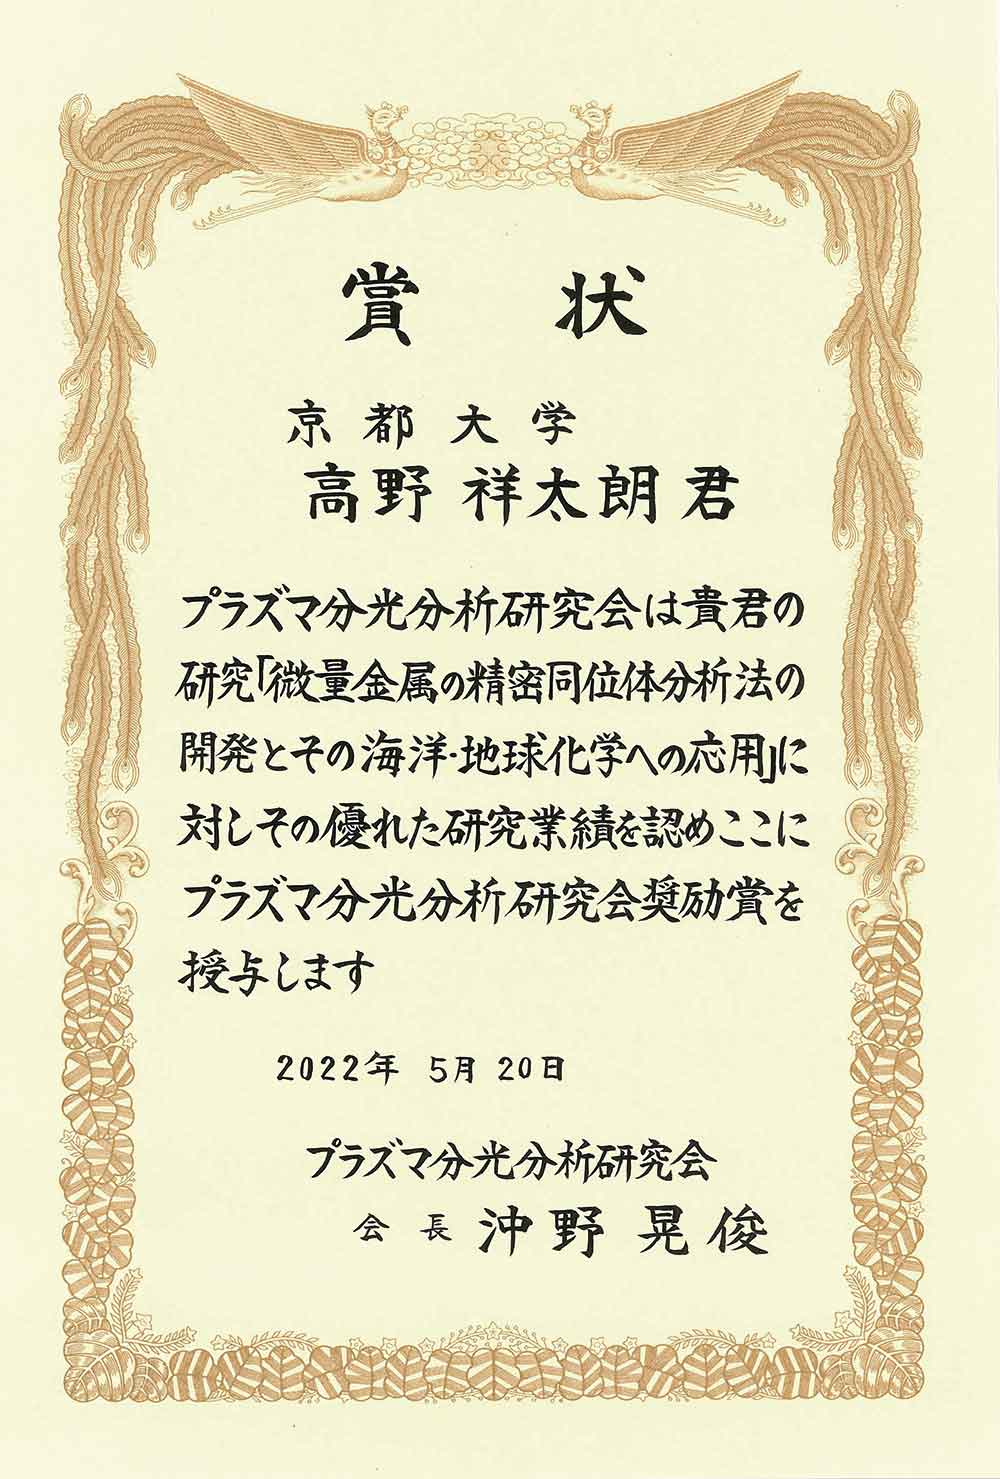 賞状
京都大学
高野祥太朗君
プラズマ分光分析研究会は貴君の
研究「微量金属の精密同位体分析法の
開発とその海洋・地球化学への応用」に
対しその優れた研究業績を認めここに
プラズマ分光分析研究会奨励賞を
授与します
2022年 5月 20日
プラズマ分光分析研究会
会長 沖野晃俊